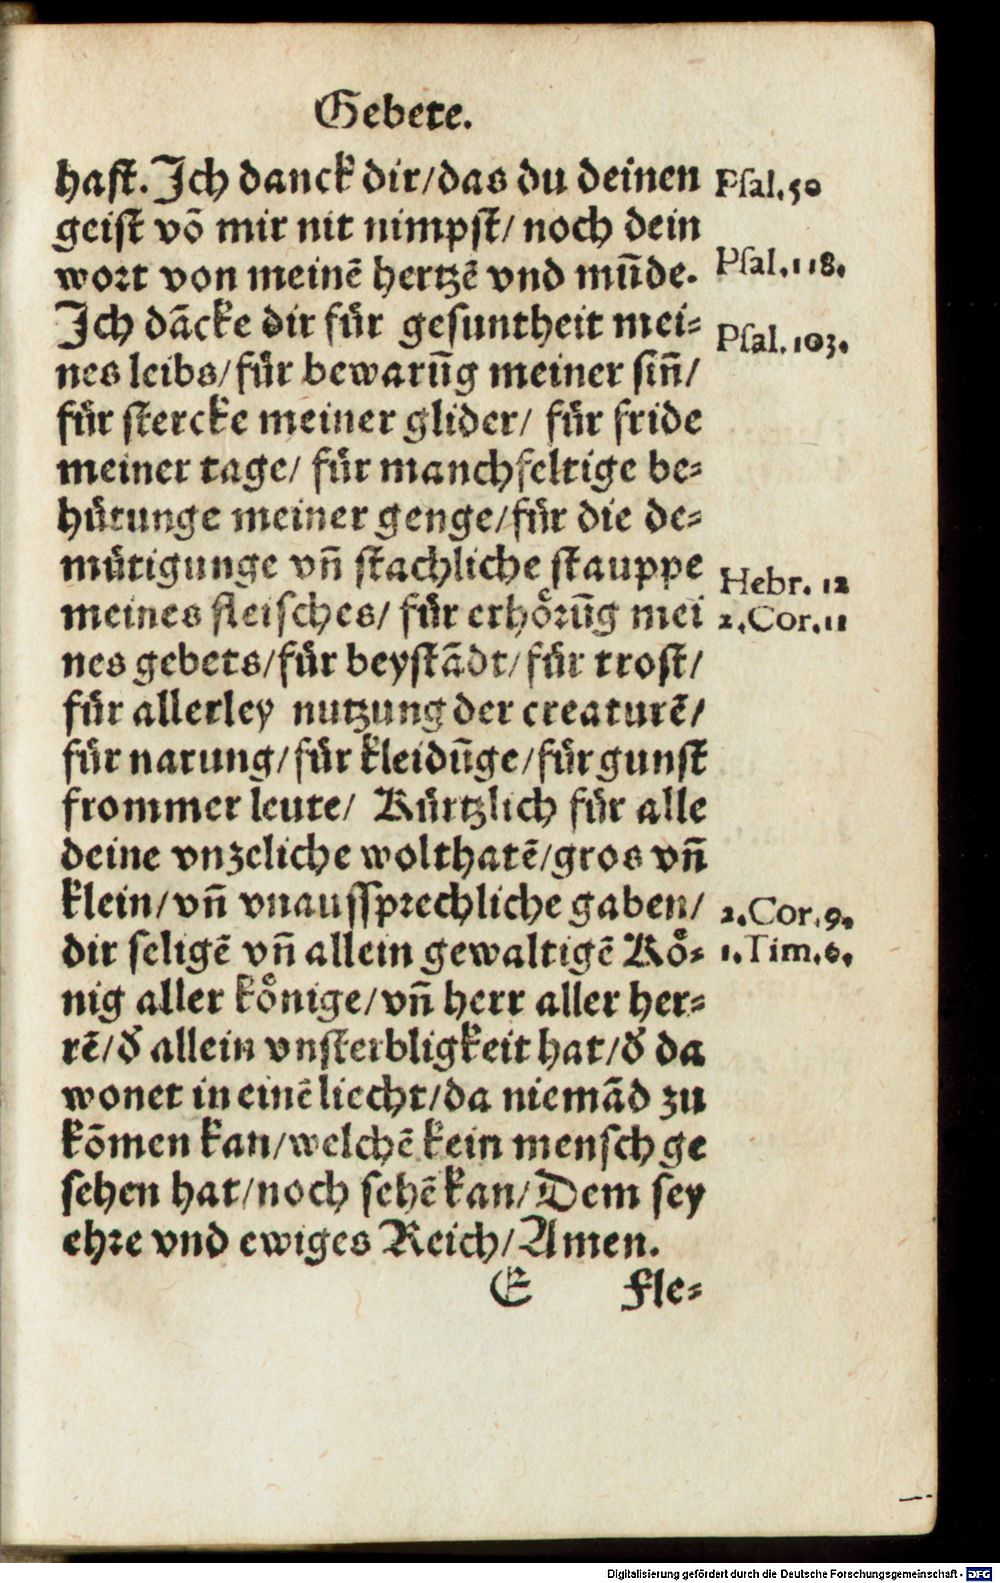 Gebete.
hast. Ich danck dir/das du deinen
Psal.50
geist võ mir nit nimpst/ noch dein
wort von meinē hertzē vnd mūde.
Psal.118.
Ich dãcke dir für gesuntheit mei⸗
Psal.103.
nes leibs/für bewarūg meiner siñ/
für stercke meiner glider/ für fride
meiner tage/ für manchfeltige be⸗
hütunge meiner genge/für die de⸗
mütigunge vñ stachliche stauppe
Hebr. 12
meines fleisches/ für erhörūg mei
2.Cor.11
nes gebets/für beystãdt/für trost/
für allerley nutzung der creaturē/
für narung/für kleidūge/für gunst
frommer leute/ Kürtzlich für alle
deine vnzeliche wolthatē/gros vñ
klein/vñ vnaussprechliche gaben/
2.Cor.9.
dir seligē vñ allein gewaltigē Kö⸗
1.Tim.6.
nig aller könige/vñ herr aller her⸗
rē/d̕ allein vnsterbligkeit hat/d̕ da
wonet in einē liecht/da niemãd zu
kõmen kan/welchē kein mensch ge
sehen hat/noch sehē kan/Dem sey
ehre vnd ewiges Reich/Amen.
E Fle⸗
Digitalisierung gefördert durch die Deutsche Forschungsgemeinschaft - DFG